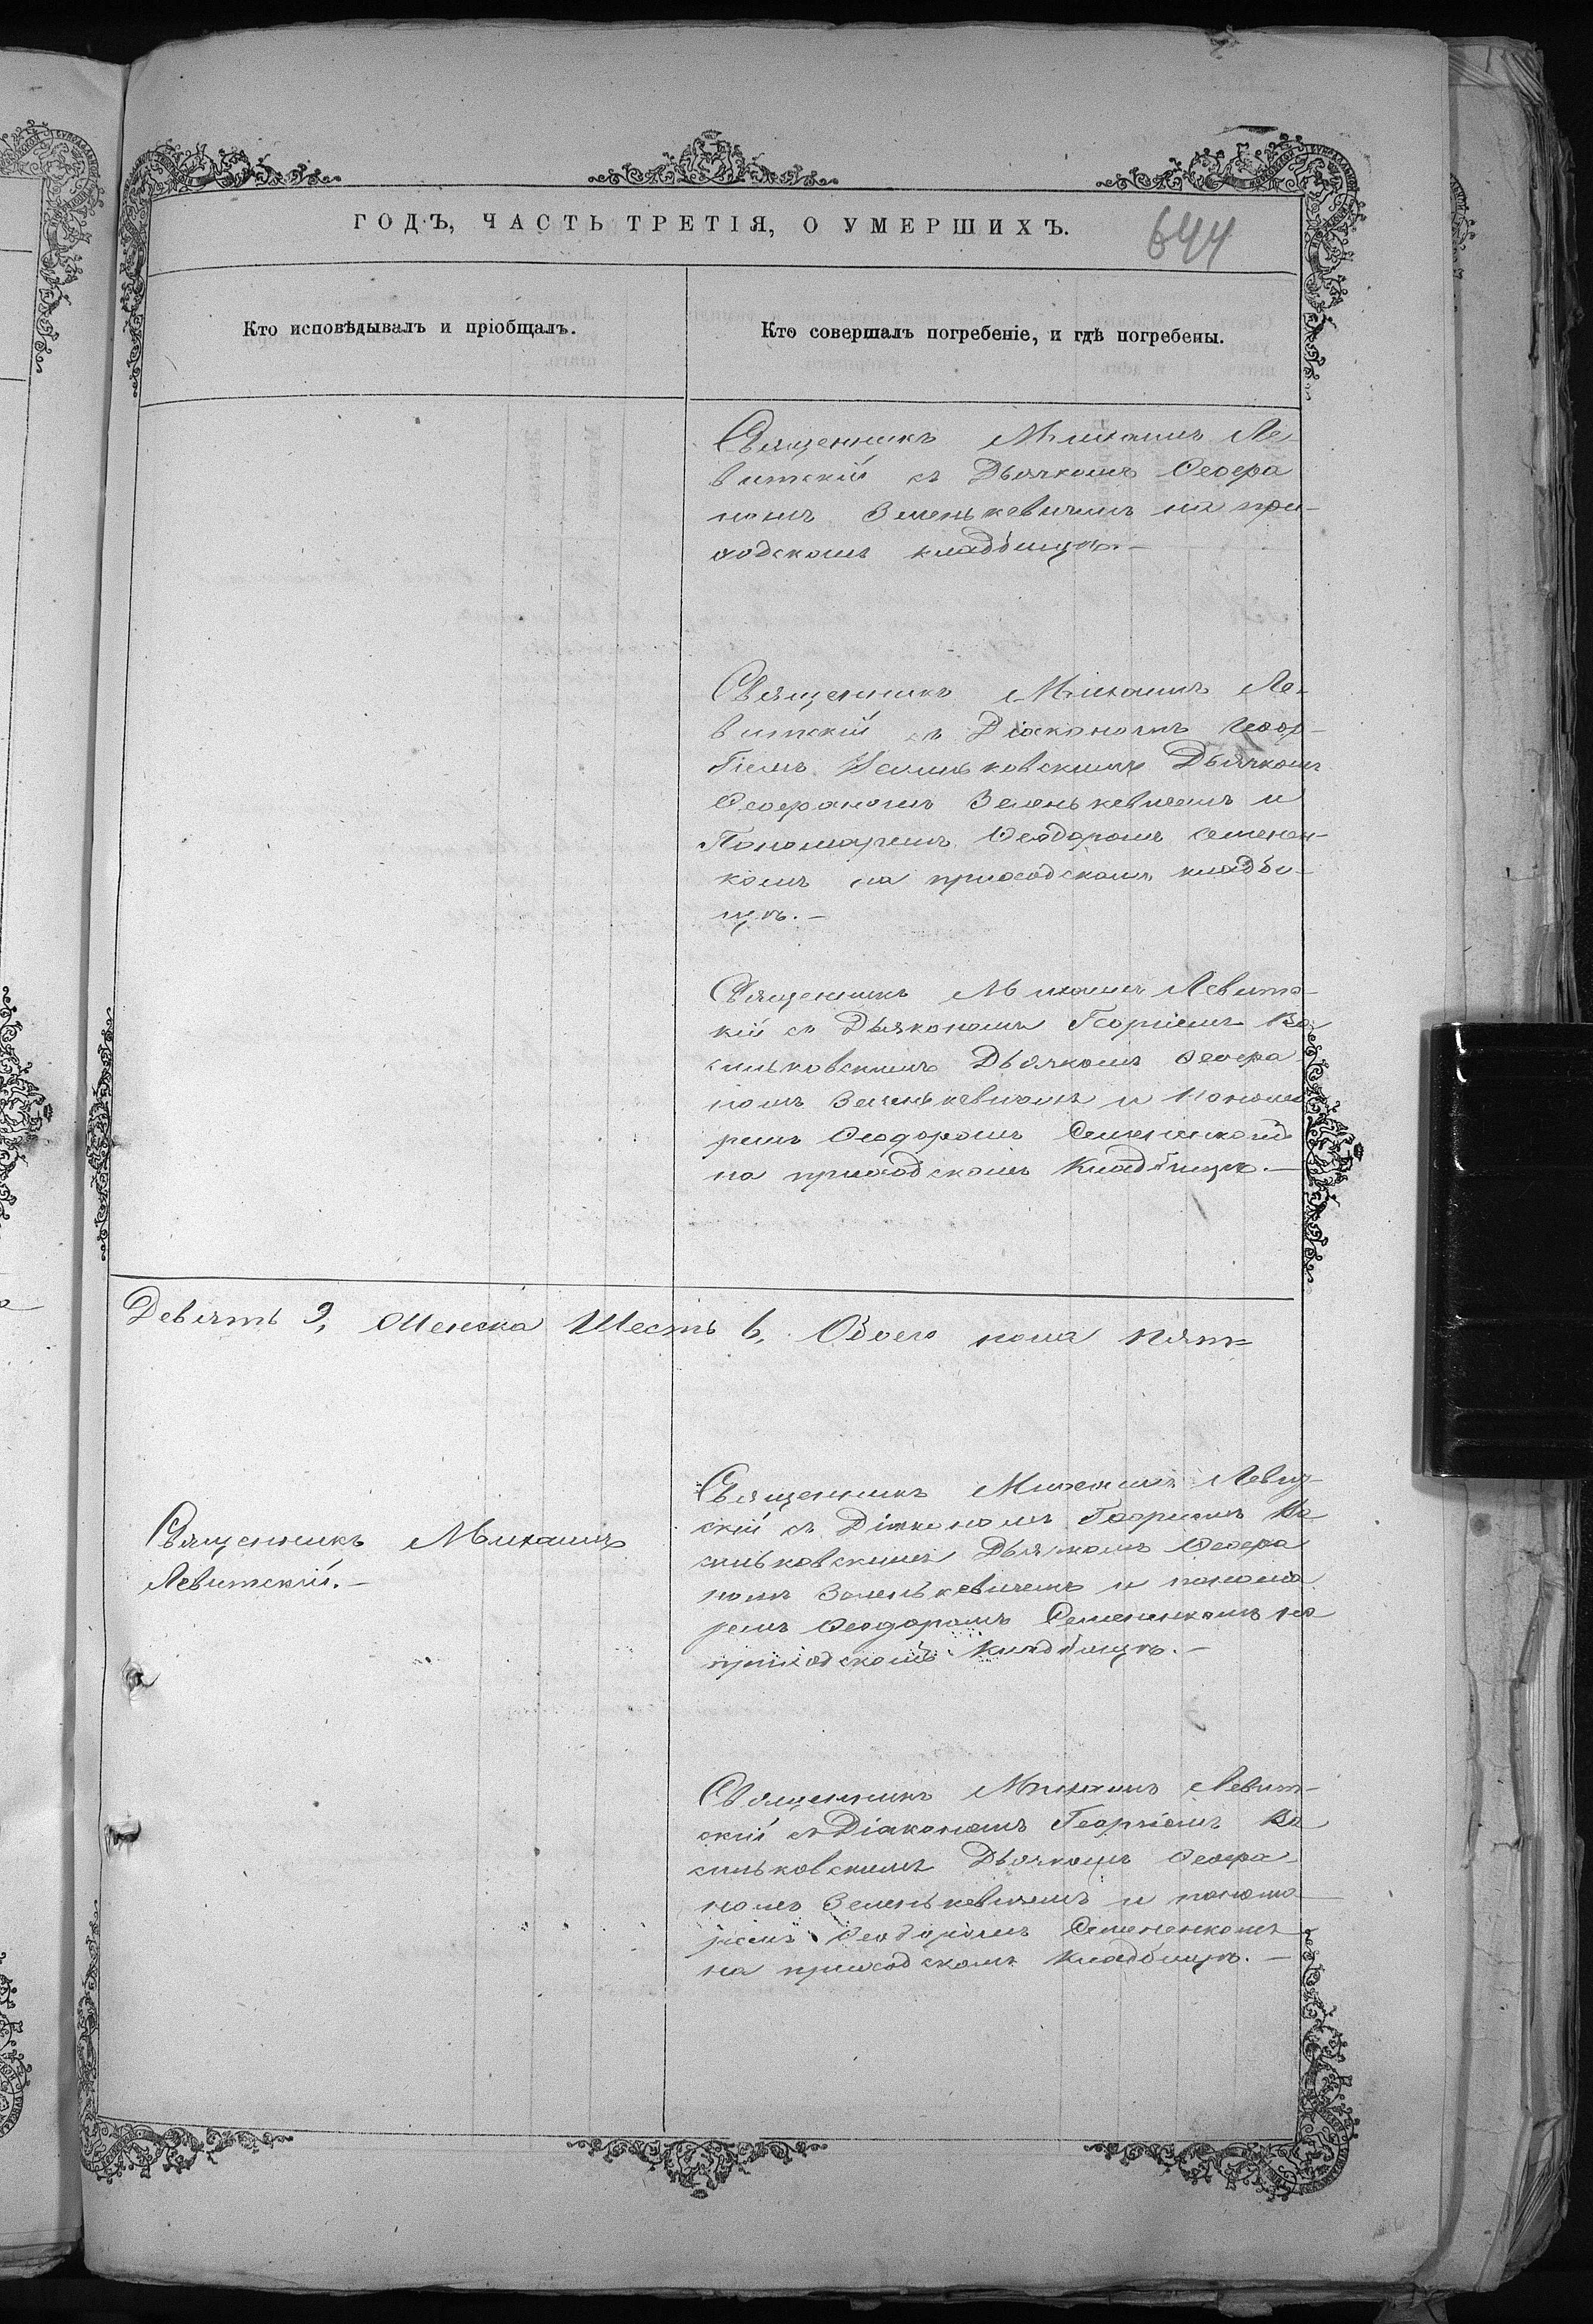 ГОДЪ, ЧАСТЬ ТРЕТІЯ, О УМЕРШИХЪ.
644
Кто исповѣдывалъ и пріобщалъ.
Кто совершалъ погребеніе, и гдѣ погребены.
Священникъ Михаилъ Ле-
витскій съ Дьячкомъ Ѳеофа
номъ Зеленькевичемъ на при-
ходскомъ кладбищѣ.—
Священникъ Михаилъ Ле-
витскій съ Діакономъ Геор-
гіемъ Васильковскимъ Дьячкомъ
Ѳеофаномъ Зеленькевичемъ и
Пономаремъ Ѳеодоромъ Семенен-
комъ на приходскомъ кладби-
щѣ.—
Священникъ Михаилъ Левитс-
кій съ Дьякономъ Георгіемъ Ва
сильковскимъ Дьячкомъ Ѳеофа
номъ Зеленькевичемъ и Понома
ремъ Ѳеодоромъ Семененкомъ
на приходскомъ Кладбищѣ.—
Девять 9, Женска Шесть 6, Обоего пола пят=
Священникъ Михаилъ
Левитскій.—
Священникъ Михаилъ Левит-
скій съ Діакономъ Георгіемъ Ва
сильковскимъ Дьячкомъ Ѳеофа
номъ Зеленькевичемъ и понома
ремъ Ѳеодоромъ Семененкомъ на
приходскомъ Кладбищѣ.—
Священникъ Михаилъ Левит-
скій съ Діакономъ Георгіемъ Ва
сильковскимъ Дьячкомъ Ѳеофа
номъ Зеленькевичемъ и понома
ремъ Ѳеодоромъ Семененкомъ
на приходскомъ Кладбищѣ.—